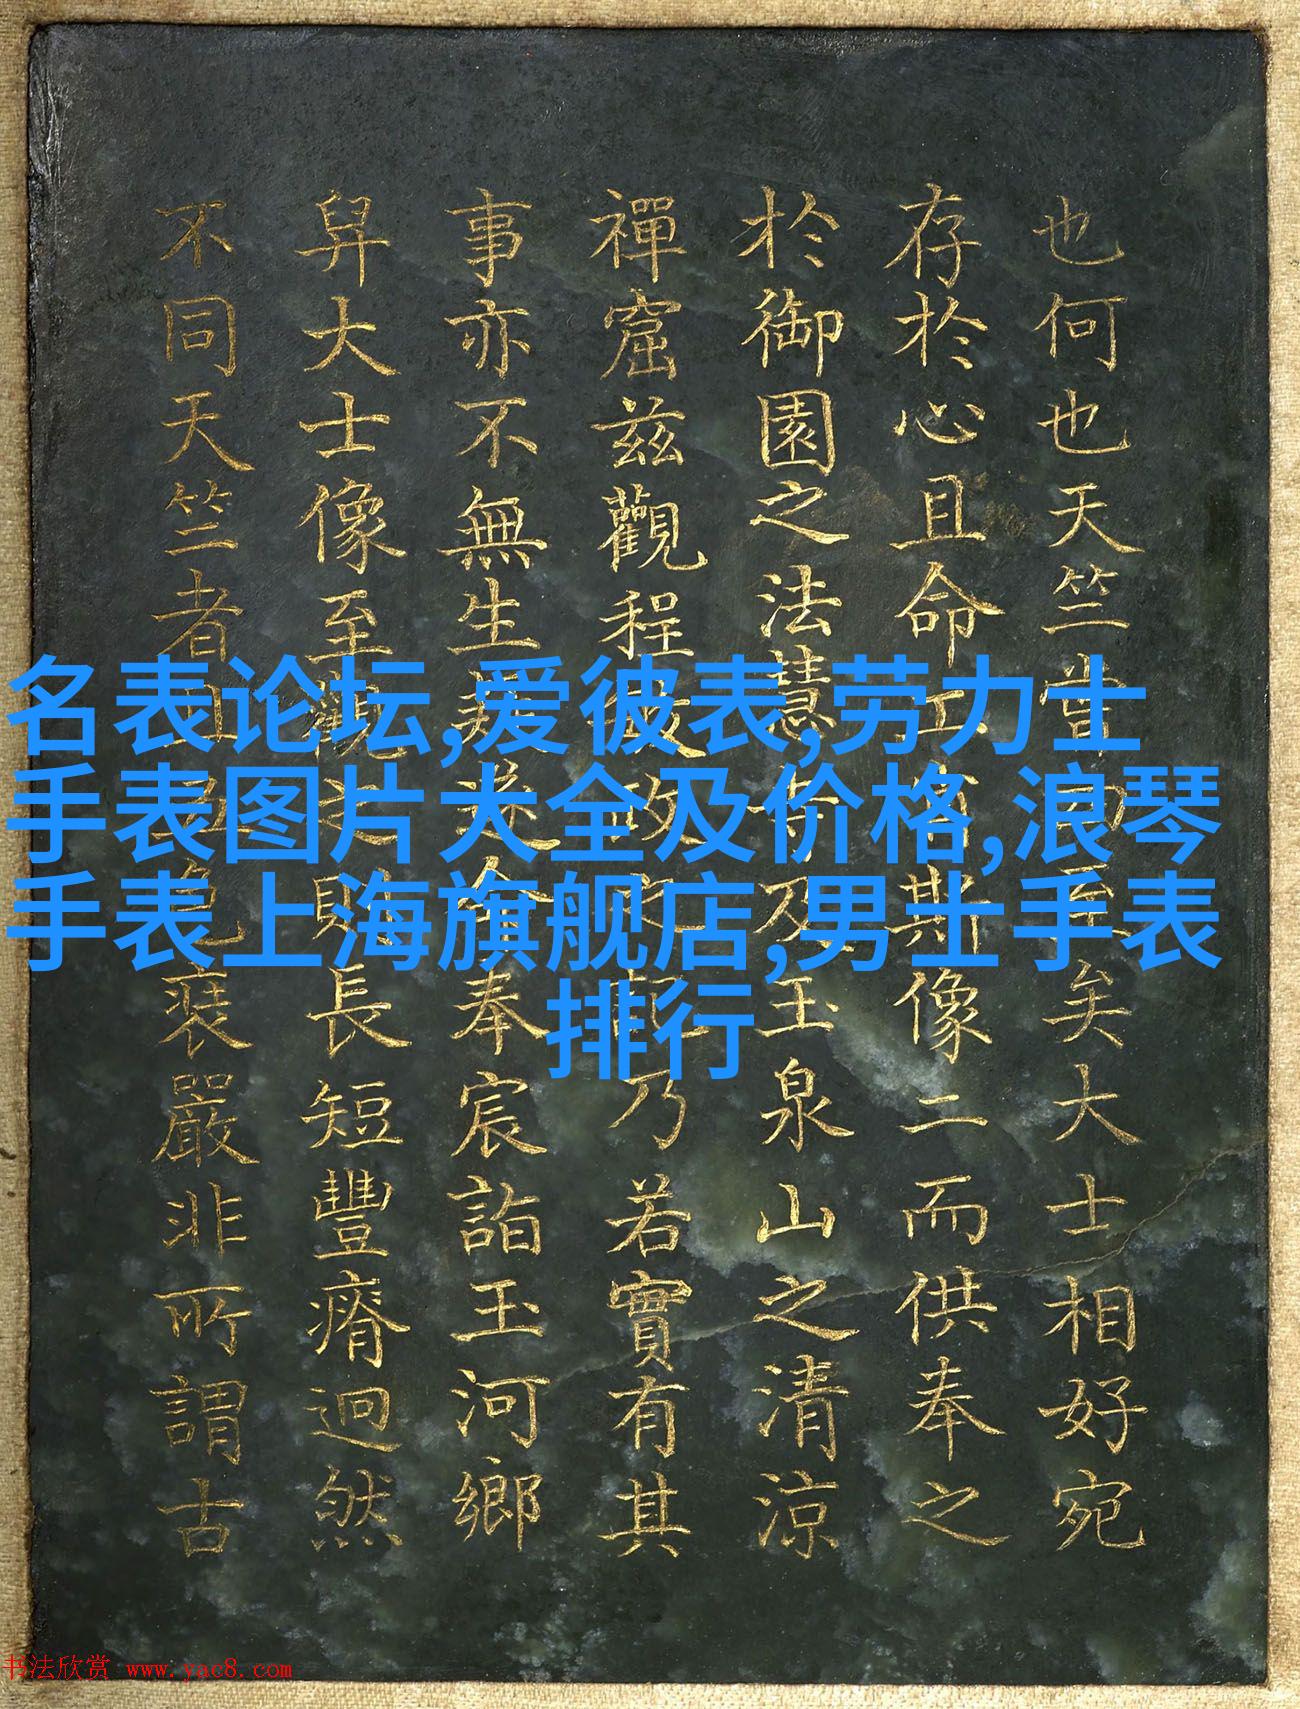 名表论坛,爱彼表,劳力士
手表图片大全及价格,浪琴
手表上海旗舰店,男士手表
排行
也何也天竺嘗至矣大士相好宛
存於心且命工肖斯像二而供奉之
於御園之法慧寺及玉泉山之清涼
禪窟兹觀程乃若實有其
事亦不無生疑兹令奉宸詣玉河鄉
舁大士像至觀之則長短豐瘠迥然
不同天竺者色裝嚴非所謂古
书法欣赏 www.yac8.com